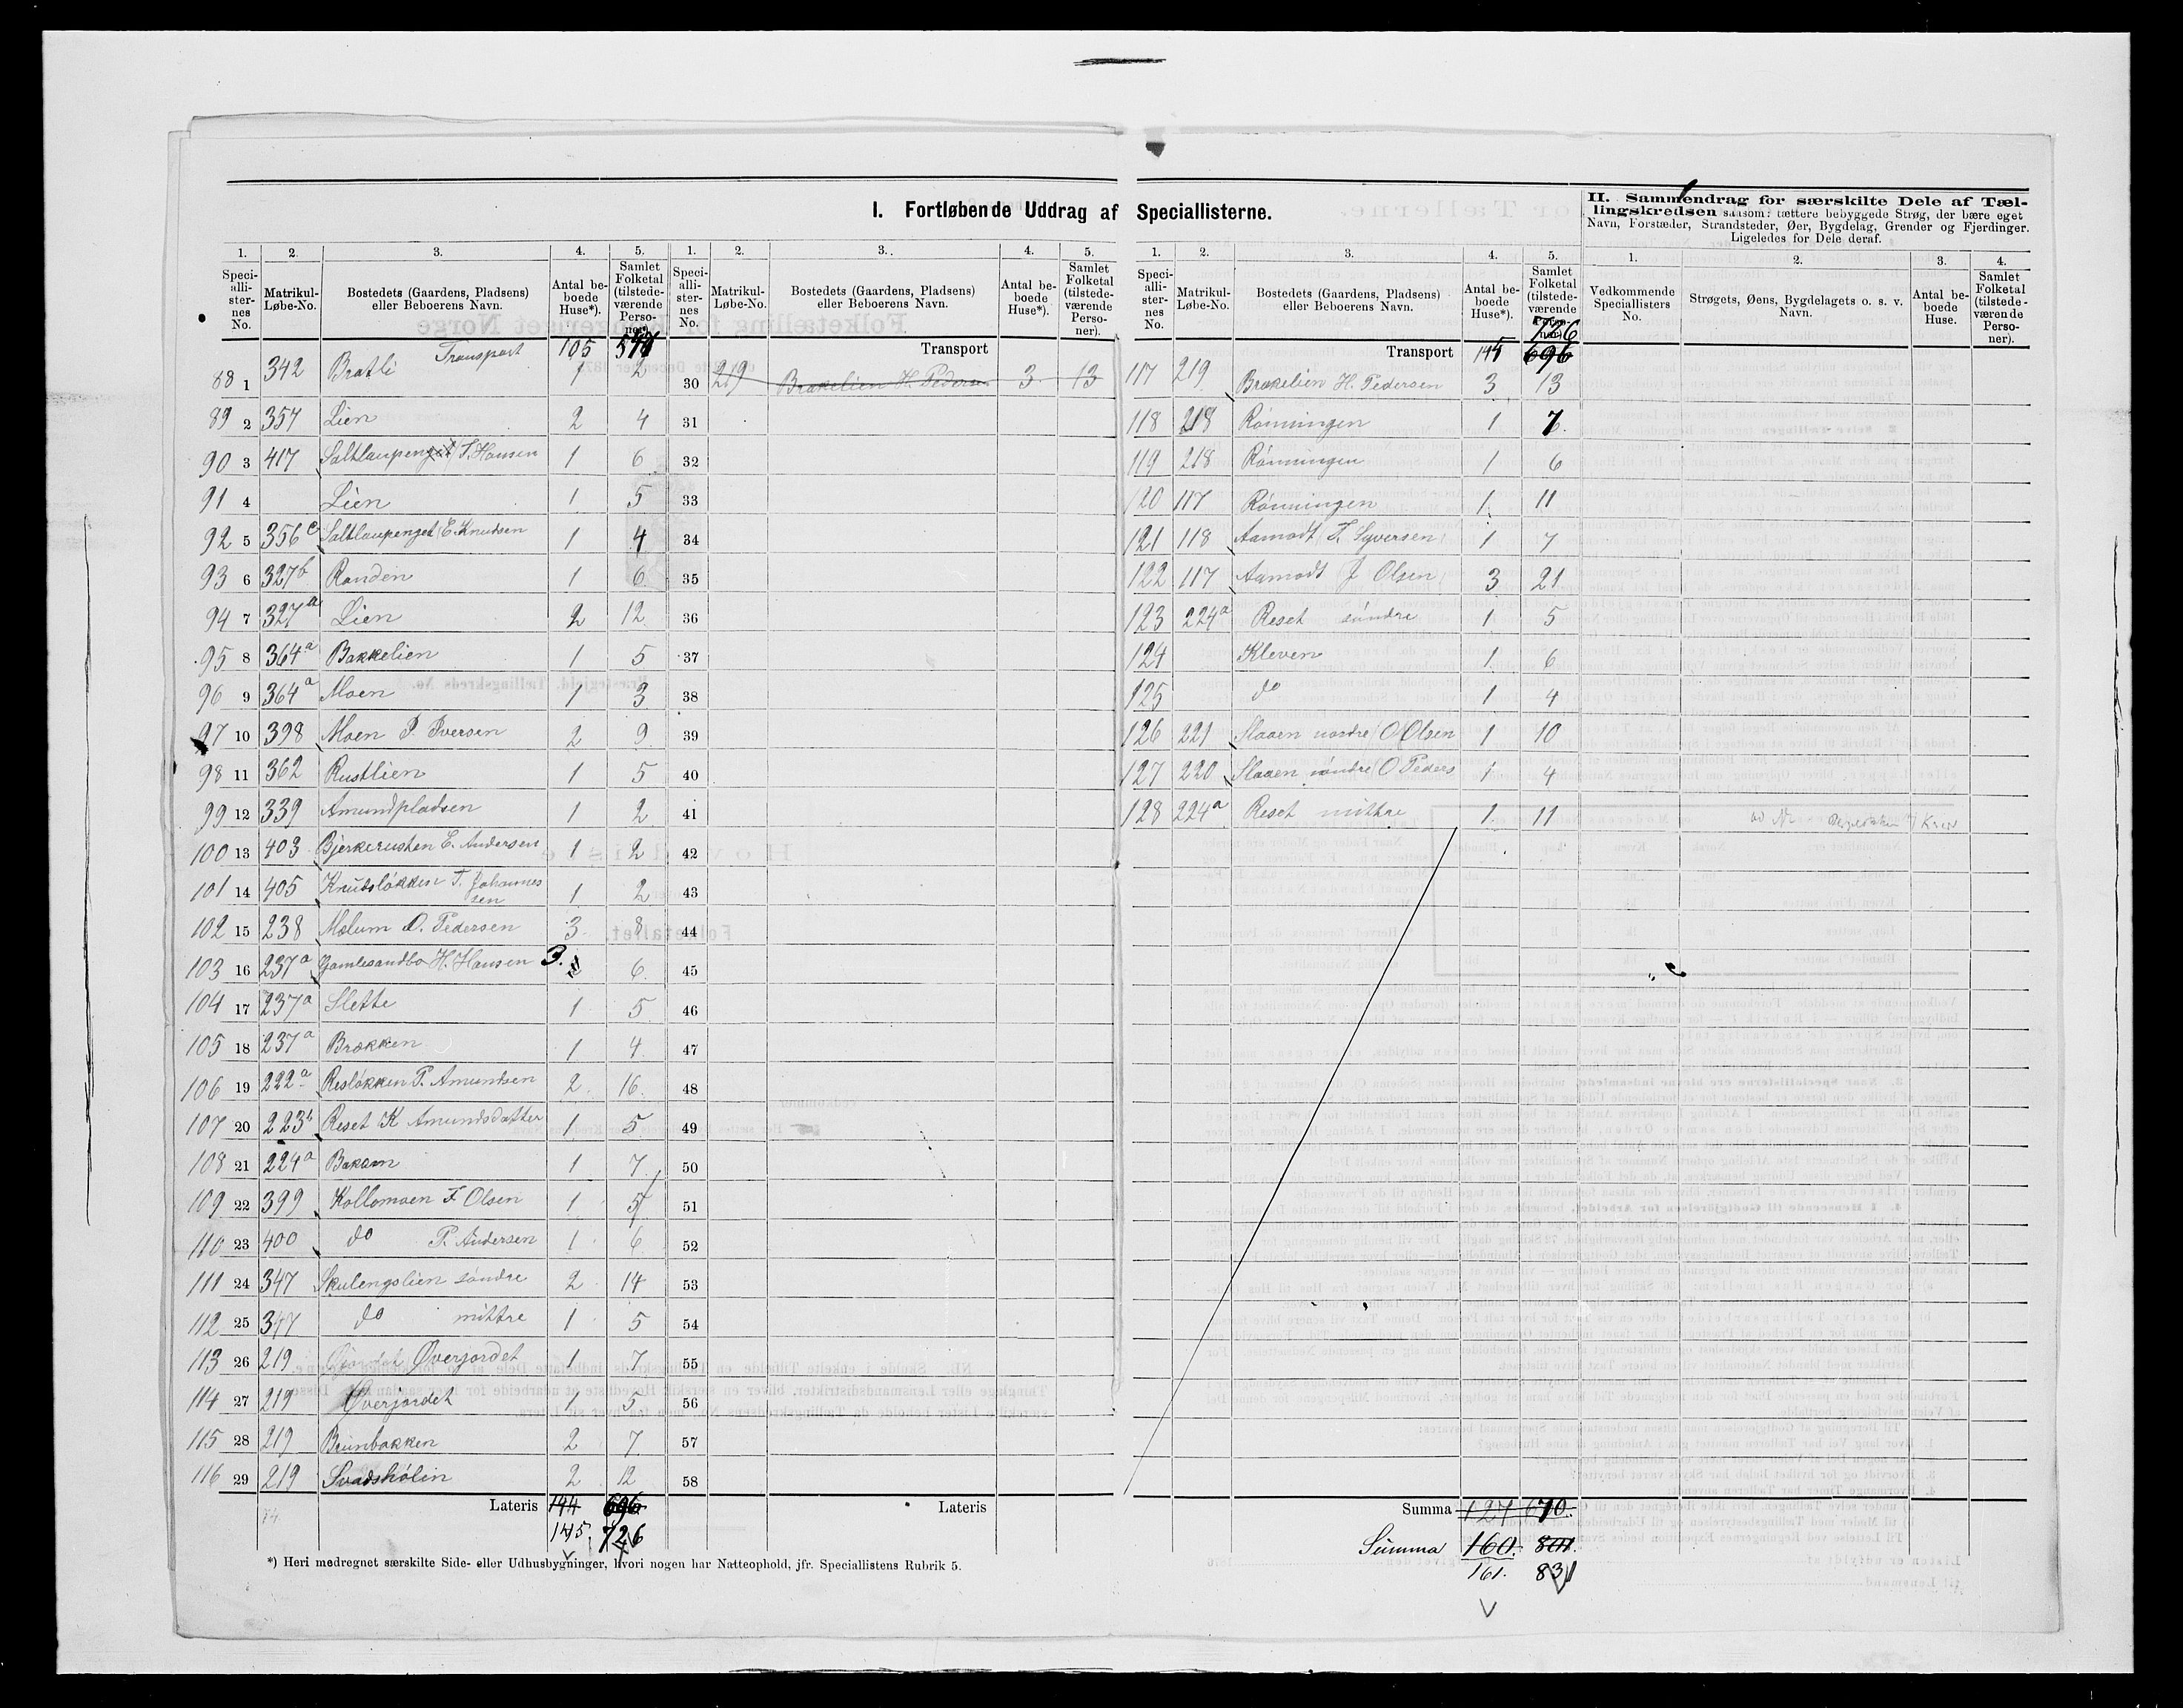 I. Fortløbende Uddrag af Speciallisterne.
II. Sammendrag for særskilte Dele af Tællingskredsen saasom: tættere bebyggede Strøg, der bære eget
Navn, Forstæder, Strandsteder, Øer, Bygdelag, Grender og Fjerdinger.
Ligeledes for Dele deraf.
1. 2. 3. 4. 5.
Speciallisternes No. Matrikul-Løbe-No. Bostedets (Gaardens, Pladsens) eller Beboerens Navn. Antal beboede Huse*). Samlet Folketal (tilstedeværende Personer).
Transport 105
88 1 342 Bratli 1 2
89 2 357 Lien 2 4
90 3 417 Saltlaupenget T. Hansen 1 6
91 4 Lien 1 5
92 5 356c Saltlaupenget E. Knudsen 1 4
93 6 327b Randen 1 6
94 7 327a Lien 2 12
95 8 364a Bakkelien 1 5
96 9 364a Moen 1 3
97 10 398 Moen P. Iversen 2 9
98 11 362 Rustlien 1 5
99 12 339 Amundpladsen 1 2
100 13 403 Bjerkerusten E. Andersen 1 2
101 14 405 Knutsløkken T. Johannes
sen 1 2
102 15 238 Melum O. Pedersen 3 8
103 16 237a Gamlesandbo H. Hansen 3. 6
104 17 237a Slette 1 5
105 18 237a Brækken 1 4
106 19 222a Resløkken P. Amundsen 2 16
107 20 223b Reset K Amundsdatter 1 5
108 21 224a Bakom 1 7
109 22 399 Kollomoen F. Olsen 1 5
110 23 400 do P. Andersen 1 6
111 24 347 Skulengslien søndre 2 14
112 25 347 do mittre 1 5
113 26 219 Øverjordet 1 7
114 27 219 Øverjordet 1 5
115 28 219 Brunbakken 2 7
116 29 219 2 12
Lateris 144 696
145. 726
*) Heri medregnet særskilte Side- eller Udhusbygninger, hvori nogen har Natteophold, jfr. Speciallistens Rubrik 5.
1. 2. 3. 4. 5.
Speciallisternes No. Matrikul-Løbe-No. Bostedets (Gaardens, Pladsens) eller Beboerens Navn. Antal beboede Huse*). Samlet Folketal (tilstedeværende Personer).
Transport
30 219 Brækelien H. Pedersen 3 13
31
32
33
34
35
36
37
38
39
40
41
42
43
44
45
46
47
48
49
50
51
52
53
54
55
56
57
58
Lateris
1. 2. 3. 4. 5.
Speciallisternes No. Matrikul-Løbe-No. Bostedets (Gaardens, Pladsens) eller Beboerens Navn. Antal beboede Huse*). Samlet Folketal (tilstedeværende Personer).
726
Transport 145 696
117 219 Brækelien H. Pedersen 3 13
118 218 Rønningen 1 7
119 218 Rønningen 1 6
120 117 Rønningen 1 11
121 118 Aamodt T. Syversen 1 7
122 117 Aamodt J Olsen 3 21
123 224a Reset søndre 1 5
124 Kleven 1 6
125 do 1 4
126 221 Slaaen nordre O Olsen 1 10
127 220 Slaaen søndre O Peders 1 4
128 224a Reset mittre 1 11
Summa 127 670.
Summa 160. 801.
161. 831
1. 2. 3. 4.
Vedkommende Speciallisters No. Strøgets, Øens, Bygdelagets o. s. v. Navn. Antal beboede Huse. Samlet Folketal (tilstedeværende Personer).